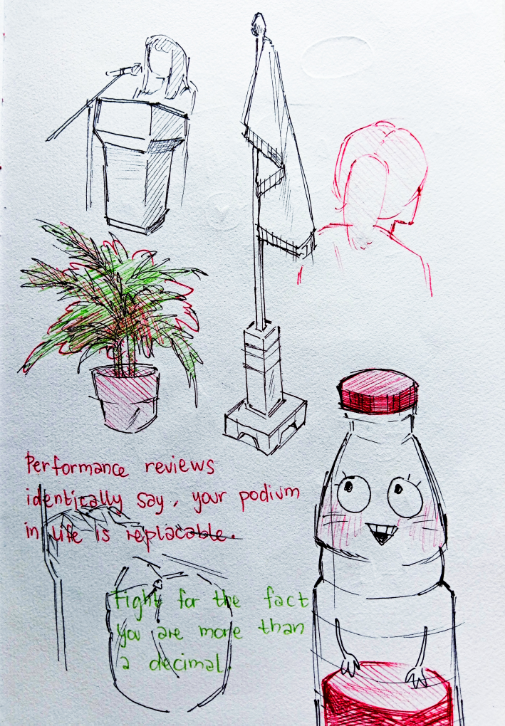 Performance reviews
identically say, your podium
in life is replacable.
Fight for the fact
you are more than
a decimal.